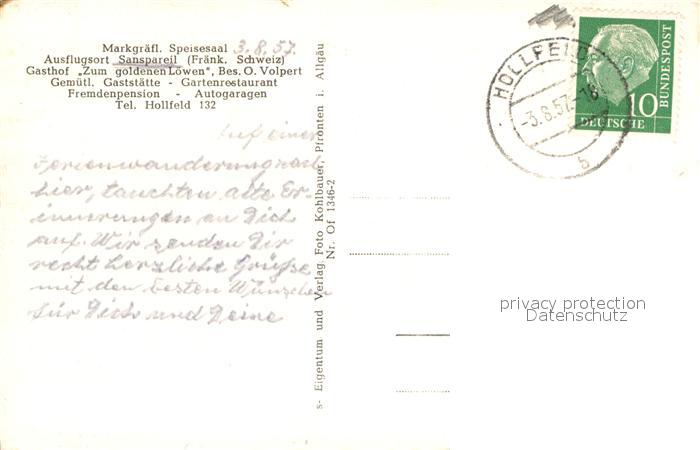 Markgräfl. Speisesaal 3.8.57.
Ausflugsort Sanspareil (Fränk. Schweiz)
Gasthof „Zum goldenen Löwen", Bes. O. Volpert
Gemütl. Gaststätte - Gartenrestaurant
Fremdenpension - Autogaragen
Tel. Hollfeld 132
Auf einer
Ferienwanderung nach
hier, tauchten alte Er-
innerungen an Dich
auf. Wir senden Dir
recht herzliche Grüße
mit den besten Wünschen
für Dich und Deine
s- Eigentum und Verlag Foto Kohlbauer, Pfronten i. Allgäu
Nr. Of 1346-2
HOLLFELD
-3.8.57.-18
b
10
DEUTSCHE
BUNDESPOST
privacy protection
Datenschutz